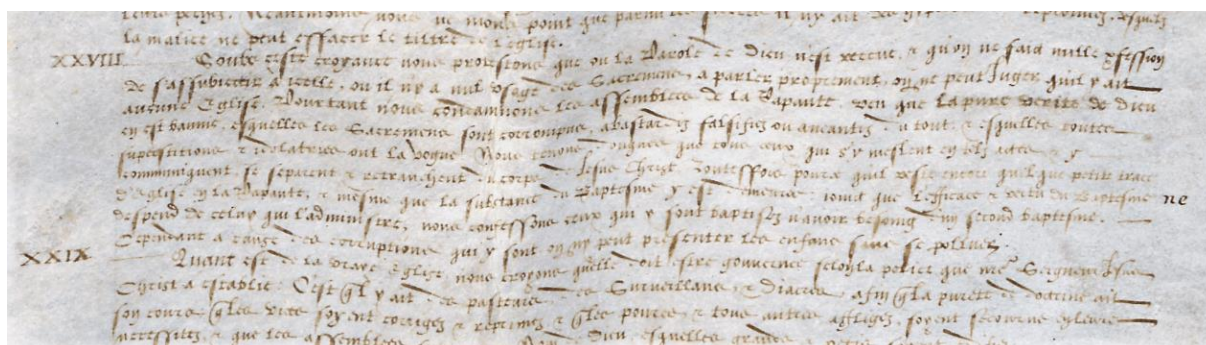 leurs peches. Neantmoins nous ne nions point que parmi les fideles il n'y ait des
la malice ne peut effacer le tiltre de l'eglise.
XXVIII Soubz ceste croyance nous protestons que ou la Parole de Dieu n'est receue, & qu'on ne faid nulle pfession
de s'assubiectir à icelle, ou il n'y a nul usage des Sacremens, a parler proprement, on ne peut Juger quil y ait
aucune Eglise. Pourtant nous condamnons les assemblees de la Papaulté, veu que la pure verite de dieu
en est bannie, esquelles les Sacremens sont corrompus, abastardis falsifiez ou aneantis du tout, & esquelles toutes
superstitions & idolatries ont la vogue. Nous tenons doncques que tous ceux qui s'y meslent en telz actes & y
communiquent, se separent & retranchent du corps de Jesus Christ. Touteffois pource quil reste encore quelque petit trace
d'Eglise en la Papaulté, & mesme que la substance du Baptesme y est demeuree, ioinct que l'efficace & vertu du Baptesme ne
despend de celuy qui l'administre, nous confessons ceux qui y sont baptisez n'avoir besoing d'un second baptesme.
Cependant a cause des corruptions qui y sont on n'y peut presenter les enfans sans se polluer.
XXIX Quant est de la vraye Eglise, nous croyons quelle doit estre gouvernee selon la police que nre Seigneur Jesus
Christ a establie. C'est ql y ait des pasteurs, des Surveillans & diacres, afin q la pureté de doctrine ait
son cours, q les vices soyent corrigez & reprimez & q les povres & tous autres affligez soyent secourus en leurs
necessitez, & que les assemblees Dieu, esquelles grands & petis